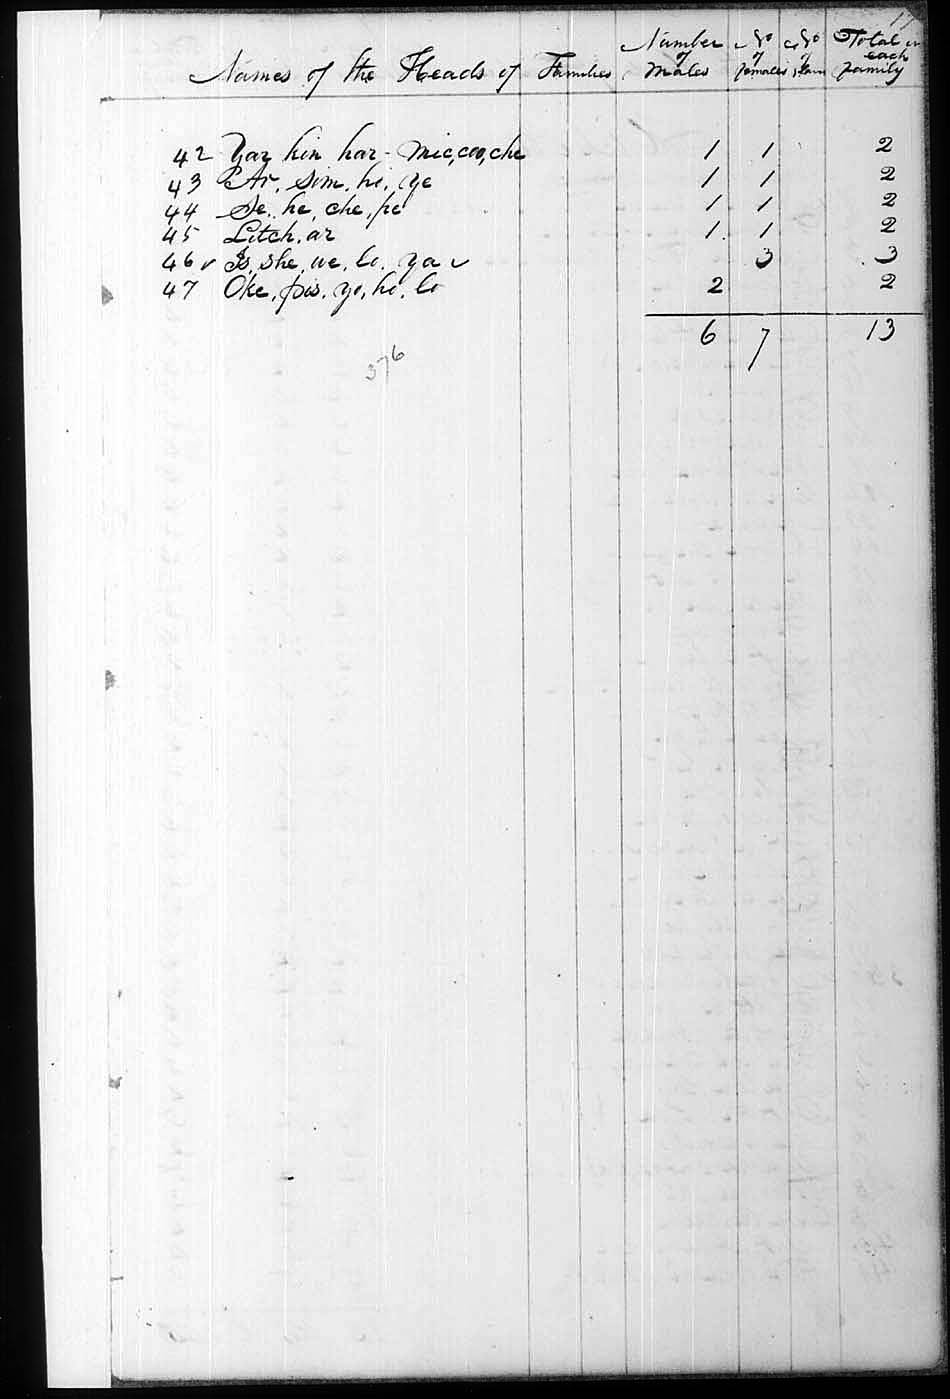 17
Names of the Heads of Families Number of Males No of females No of slaves Total in each family
42 Yar kin har - Mic,coo,che 1 1 2
43 Ar, som, hi, ye 1 1 2
44 Se, he, che, pe 1 1 2
45 Litch, ar 1 1 2
46 Is, she, we, lo, ya 3 3
47 Oke, pis, yo, ho, lo 2 2
6 7 13
376